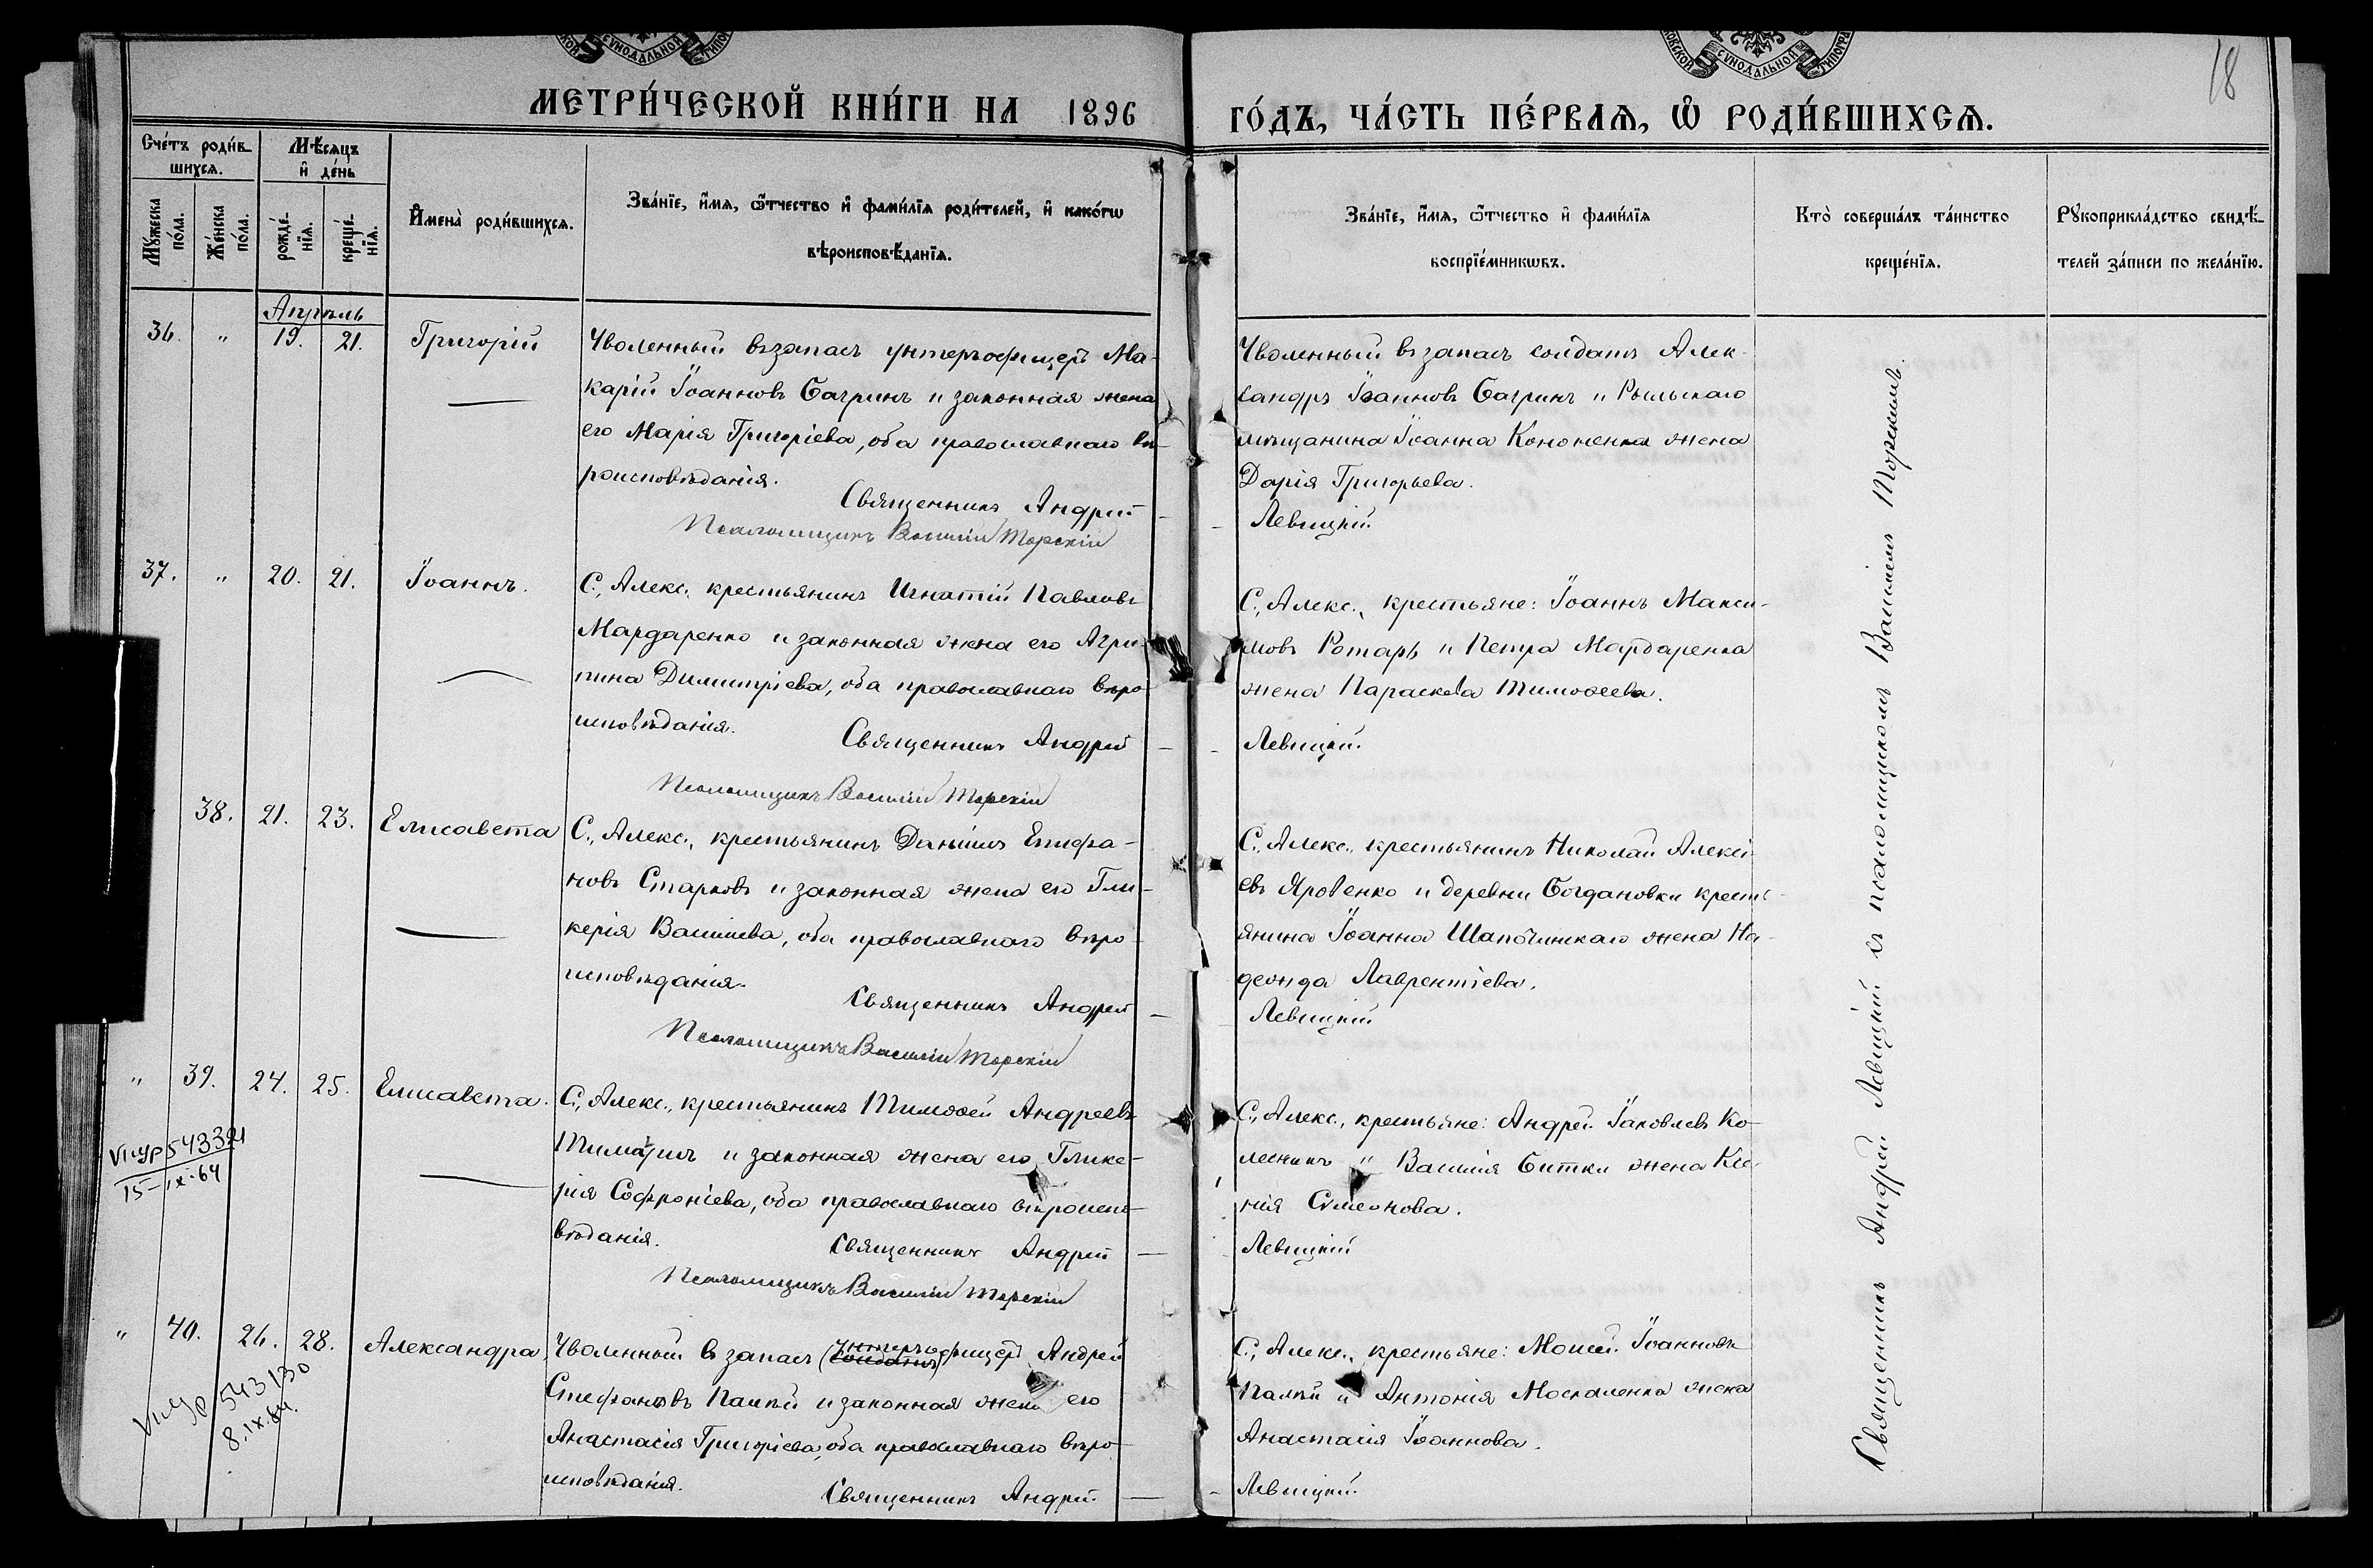 СУНОДАЛЬНОЙ
СУНОДАЛЬНОЙ
18
МЕТРИ́ЧЕСКОЙ КНИ́ГИ НА 1896 ГО́ДЪ, ЧА́СТЬ ПЕ́РВАЯ, Ѿ РОДИ́ВШИХСѦ.
Сче́тъ роди́в-
шихсѧ.
Мѣ́сѧцъ
и҆ де́нь
Мꙋ́жеска
по́ла.
Же́нска
по́ла.
рожде́-
нїѧ.
креще́-
нїѧ.
И҆мена̀ роди́вшихсѧ.
Зва́нїе, и҆́мѧ, ѻ҆́тчество и҆ фами́лїѧ роди́телей, и҆ како́гѡ
вѣроисповѣ́данїѧ.
Зва́нїе, и҆́мѧ, ѻ҆́тчество и҆ фами́лїѧ
воспрїе́мникѡвъ.
Кто̀ соверша́лъ та́инство
креще́нїѧ.
Рꙋкоприкла́дство свидѣ́-
телей за́писи по жела́нїю.
Апрѣль
36. " 19. 21. Григорій
Уволенный въ запасъ унтеръ-офицеръ Ма-
карій Іоанновъ Багринъ и законная жена
его Марія Григоріева, оба православнаго вѣ-
роисповѣданія.
Священникъ Андрей
Псаломщикъ Василій Торскій
Уволенный въ запасъ солдатъ Алек-
сандръ Іоанновъ Багринъ и Рыльскаго
мѣщанина Іоанна Кононенка жена
Дарія Григорьева.
Левицкій
37. " 20. 21. Іоаннъ.
С., Алекс., крестьянинъ Игнатій Павловъ
Мардаренко и законная жена его Агри-
пина Димитріева, оба православнаго вѣро-
исповѣданія.
Священникъ Андрей
Псаломщикъ Василій Торскій
С., Алекс., крестьяне: Іоаннъ Макси-
мовъ Ротарь и Петра Мардаренка
жена Параскева Тимоѳеева.
Левицкій
38. 21. 23. Елисавета
С., Алекс., крестьянинъ Даніилъ Епифа-
новъ Старковъ и законная жена его Гли-
керія Василіева, оба православнаго вѣро-
исповѣданія.
Священникъ Андрей
Псаломщикъ Василій Торскій
С., Алекс., крестьянинъ Николай Алексі-
евъ Яровенко и деревни Богдановки кресть-
янина Іоанна Шапочинскаго жена На-
дежда Лаврентіева.
Левицкій
" 39. 24. 25. Елисавета.
С., Алекс., крестьянинъ Тимоѳей Андреевъ
и законная жена его Глике-
рія Софроніева, оба православнаго вѣроиспо-
вѣданія.
Священникъ Андрей
Псаломщикъ Василій Торскій
С., Алекс., крестьяне: Андрей Іаковлевъ Ко-
лесникъ и Василія Битки жена Ксе-
нія Сѵмеонова.
Левицкій
15-IX-64
" 40. 26. 28. Александра.
Уволенный въ запасъ (солдатъ) унтеръ-офицеръ Андрей
Стефановъ Палій и законная жена его
Анастасія Григоріева, оба православнаго вѣро-
исповѣданія.
Священникъ Андрей
С., Алекс., крестьяне: Моисей Іоанновъ
Палій и Антонія Москаленка жена
Анастасія Іоаннова.
Левицкій
543130
8.IX.64.
Священникъ Андрей Левицкій съ псаломщикомъ Василіемъ Торскимъ.